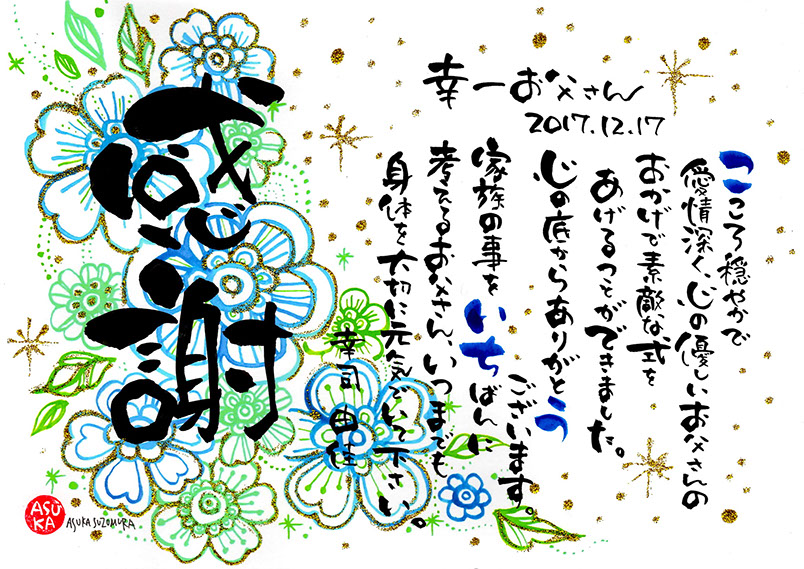 幸一お父さん
2017.12.17
こころ穏やかで
愛情深く、心の優しいお父さんの
おかげで素敵な式を
あげることができました。
心の底からありがとう
ございます。
家族の事をいちばんに
考えるお父さん、いつまでも
身体を大切に元気でいて下さい。
幸司 由佳
感謝
ASUKA
ASUKA SUZOMURA